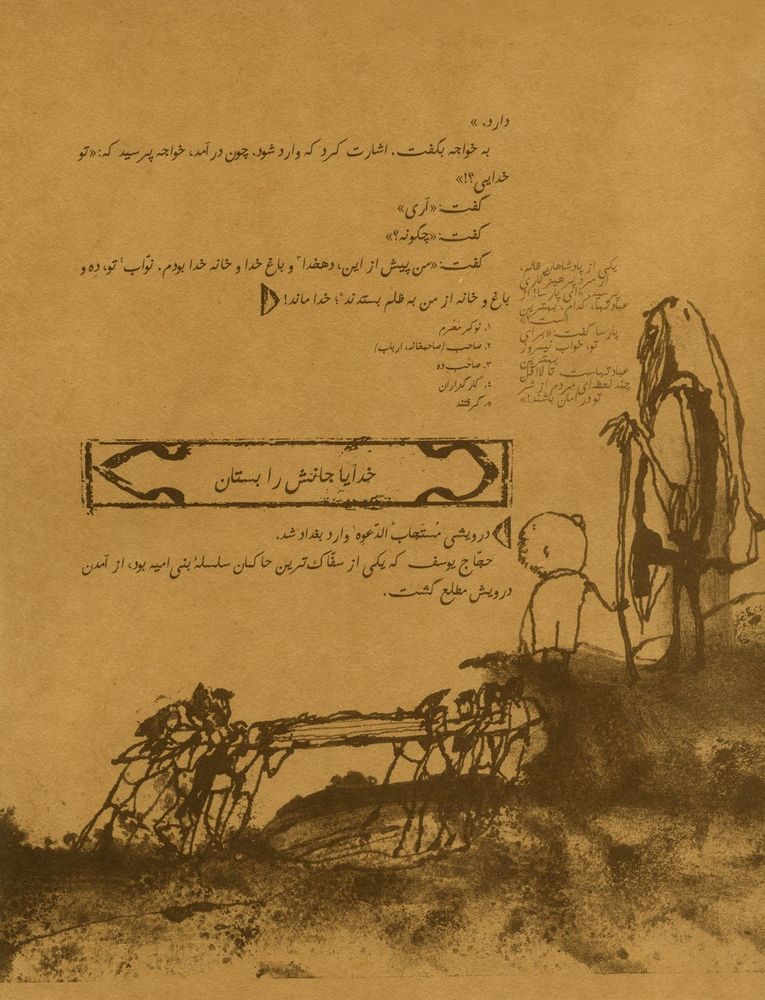 دارد. »
به خواجه بگفت. اشارت کرد که وارد شود. چون در آمد، خواجه پرسید که: «تو
خدایی؟!»
گفت: «آری»
گفت: «چگونه؟»
گفت: «من پیش از این، دهخدا۳ و باغ خدا و خانه خدا بودم. نوّاب۴ تو، دِه و
باغ و خانه از من به ظلم بستدند۵؛ خدا ماند!
۱. نوکر مَحْرم
۲. صاحب (صاحبخانه، ارباب)
۳. صاحب ده
۴. کارگزاران
۵. گرفتند
یکی از پادشاهان ظالم،
از مرد پرهیزگاری
پرسید: «ای پارسا! از
عبادتها، کدام، بهترین
است؟»
پارسا گفت: «برای
تو، خواب نیمروز
بهترین
عبادتهاست، تا لااقل
چند لحظه‌ای مردم از شر
تو در امان باشند!»
خدایا جانش را بستان
درویشی مُستَجابُ الدّعوه۱ وارد بغداد شد.
حجّاج یوسف که یکی از سفّاک‌ترین حاکمان سلسلهٔ بنی امیه بود، از آمدن
درویش مطلع گشت.